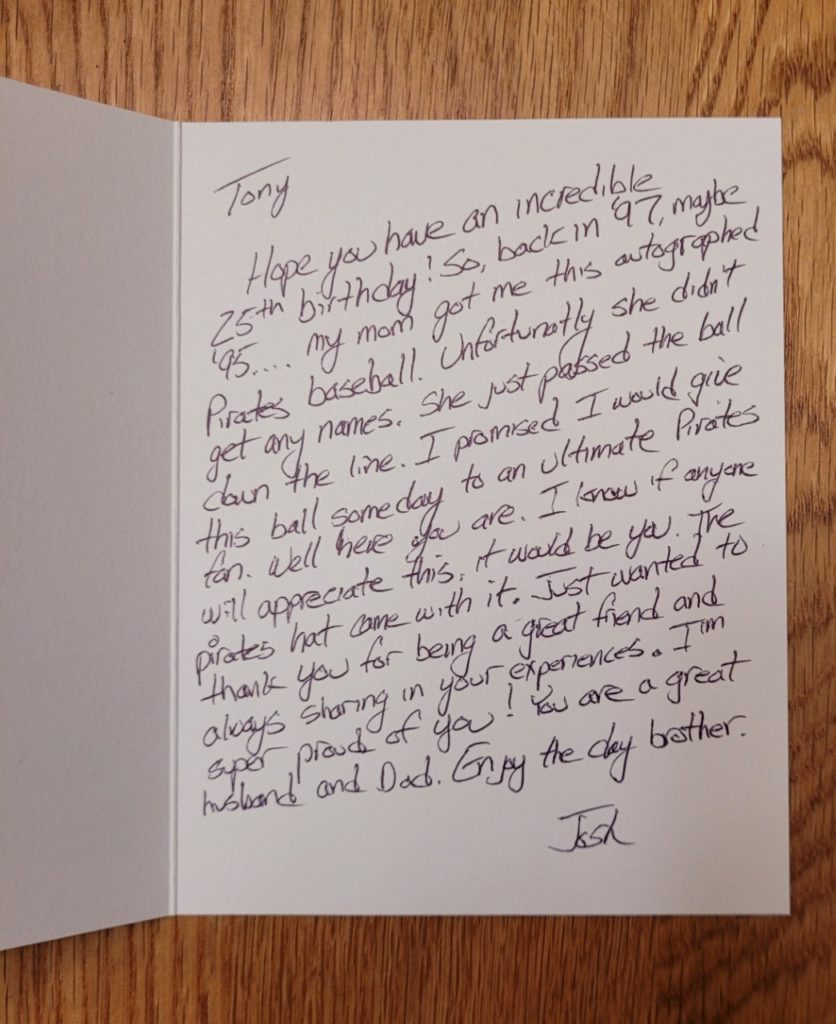 Tony
Hope you have an incredible
25th birthday! So, back in '97, maybe
'95.... my mom got me this autographed
Pirates baseball. Unfortunatly she didn't
get any names. She just passed the ball
down the line. I promised I would give
this ball someday to an ultimate Pirates
fan. Well here you are. I know if anyone
will appreciate this, it would be you. The
pirates hat came with it. Just wanted to
thank you for being a great friend and
always sharing in your experiences. I'm
super proud of you! You are a great
husband and Dad. Enjoy the day brother.
Josh